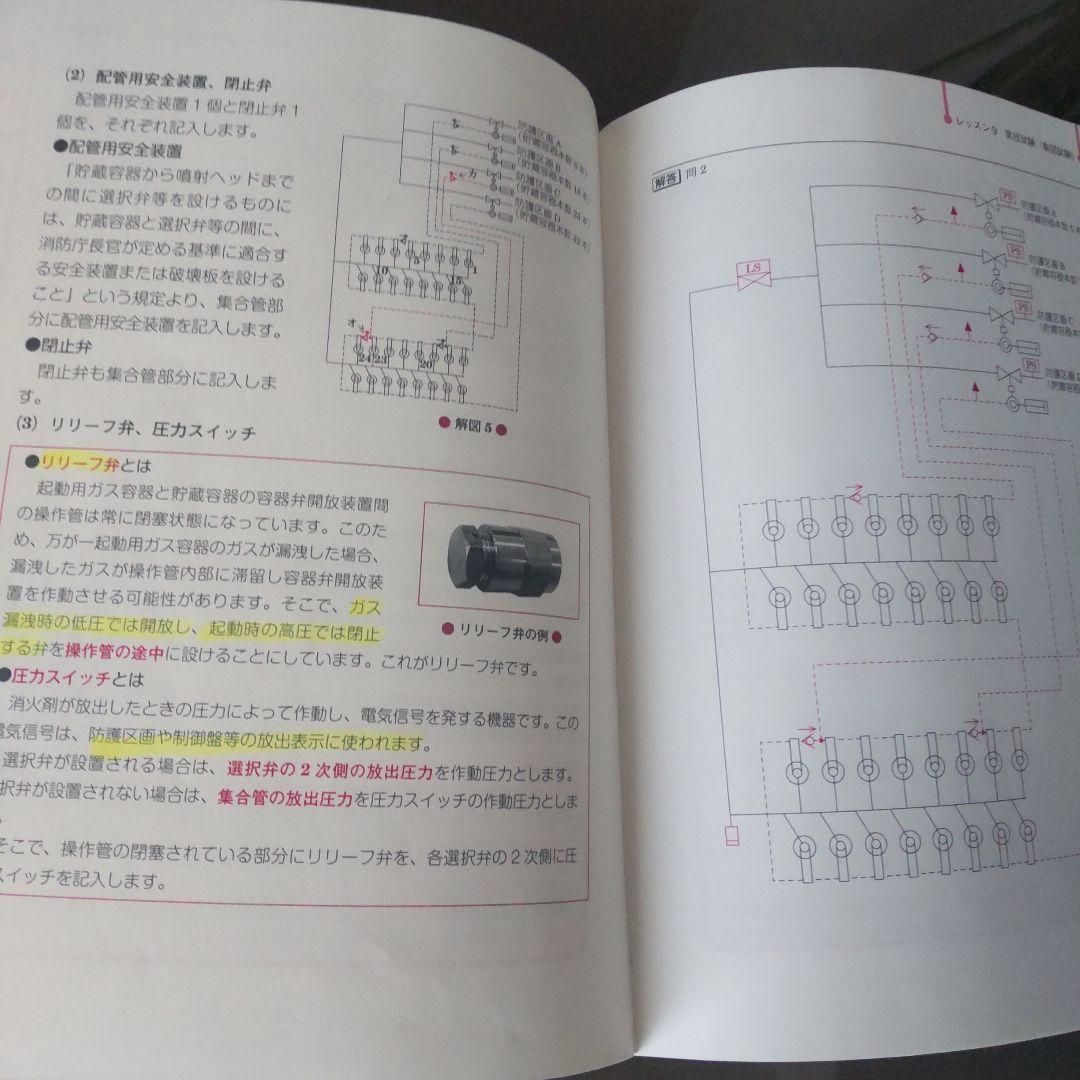 (2) 配管用安全装置、閉止弁
配管用安全装置1個と閉止弁1
個を、それぞれ記入します。
●配管用安全装置
「貯蔵容器から噴射ヘッドまで
の間に選択弁等を設けるものに
は、貯蔵容器と選択弁等の間に、
消防庁長官が定める基準に適合す
る安全装置または破壊板を設ける
こと」という規定より、集合管部
分に配管用安全装置を記入します。
●閉止弁
閉止弁も集合管部分に記入しま
す。
防護区画A
(貯蔵容器本数5本)
防護区画B
(貯蔵容器本数15本)
カ
防護区画C
(貯蔵容器本数24本)
防護区画D
(貯蔵容器本数32本)
5
1
10
15
オ
24 23
20
●解図5●
(3) リリーフ弁、圧力スイッチ
●リリーフ弁とは
起動用ガス容器と貯蔵容器の容器弁開放装置間
の操作管は常に閉塞状態になっています。このた
め、万が一起動用ガス容器のガスが漏洩した場合、
漏洩したガスが操作管内部に滞留し容器弁開放装
置を作動させる可能性があります。そこで、ガス
漏洩時の低圧では開放し、起動時の高圧では閉止
する弁を操作管の途中に設けることにしています。これがリリーフ弁です。
●リリーフ弁の例●
●圧力スイッチとは
消火剤が放出したときの圧力によって作動し、電気信号を発する機器です。この
電気信号は、防護区画や制御盤等の放出表示に使われます。
選択弁が設置される場合は、選択弁の2次側の放出圧力を作動圧力とします。
択弁が設置されない場合は、集合管の放出圧力を圧力スイッチの作動圧力としま
。
そこで、操作管の閉塞されている部分にリリーフ弁を、各選択弁の2次側に圧
スイッチを記入します。
レッスン9 実技試験(製図試験)
解答 問2
PS
防護区画A
(貯蔵容器本数5本
PS
防護区画B
(貯蔵容器本数
LS
PS
防護区画C
(貯蔵容器本数
PS
防護区画D
(貯蔵容器本数